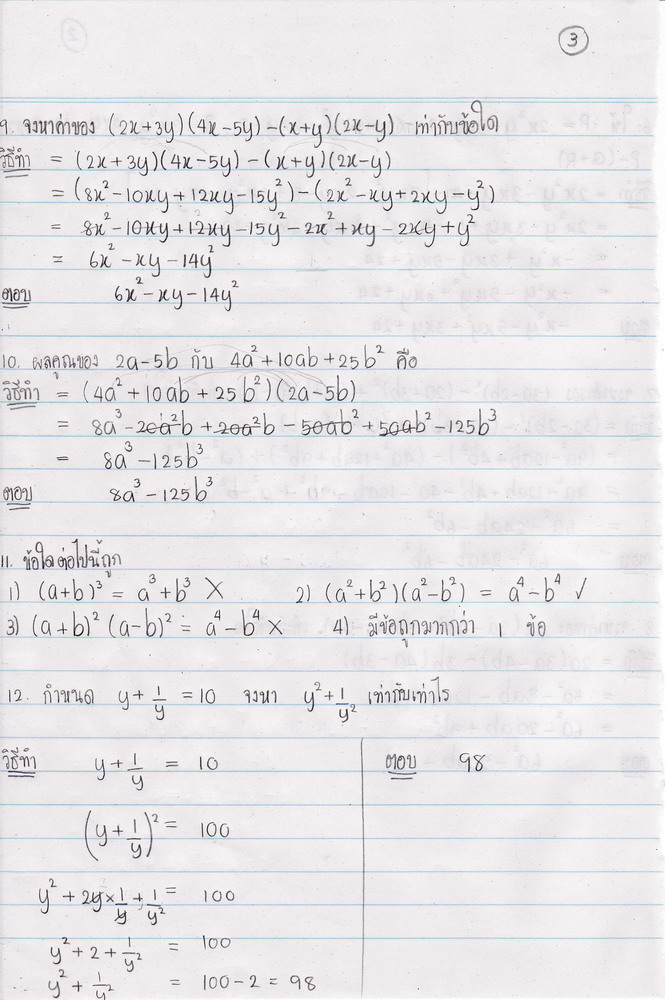 3
9. จงหาค่าของ (2x+3y)(4x-5y)-(x+y)(2x-y) เท่ากับข้อใด
วิธีทำ = (2x+3y)(4x-5y)-(x+y)(2x-y)
= (8x²-10xy+12xy-15y²)-(2x²-xy+2xy-y²)
= 8x²-10xy+12xy-15y²-2x²+xy-2xy+y²
= 6x²-xy-14y²
ตอบ 6x²-xy-14y²
10. ผลคูณของ 2a-5b กับ 4a²+10ab+25b² คือ
วิธีทำ = (4a²+10ab+25b²)(2a-5b)
= 8a³-20a²b+20a²b-50ab²+50ab²-125b³
= 8a³-125b³
ตอบ 8a³-125b³
11. ข้อใดต่อไปนี้ถูก
1) (a+b)³ = a³+b³ ✗ 2) (a²+b²)(a²-b²) = a⁴-b⁴ ✓
3) (a+b)²(a-b)² = a⁴-b⁴ ✗ 4) มีข้อถูกมากกว่า 1 ข้อ
12. กำหนด y+1/y = 10 จงหา y²+1/y² เท่ากับเท่าไร
วิธีทำ y+1/y = 10
(y+1/y)² = 100
y²+2y×1/y+1/y² = 100
y²+2+1/y² = 100
∴ y²+1/y² = 100-2 = 98
ตอบ 98